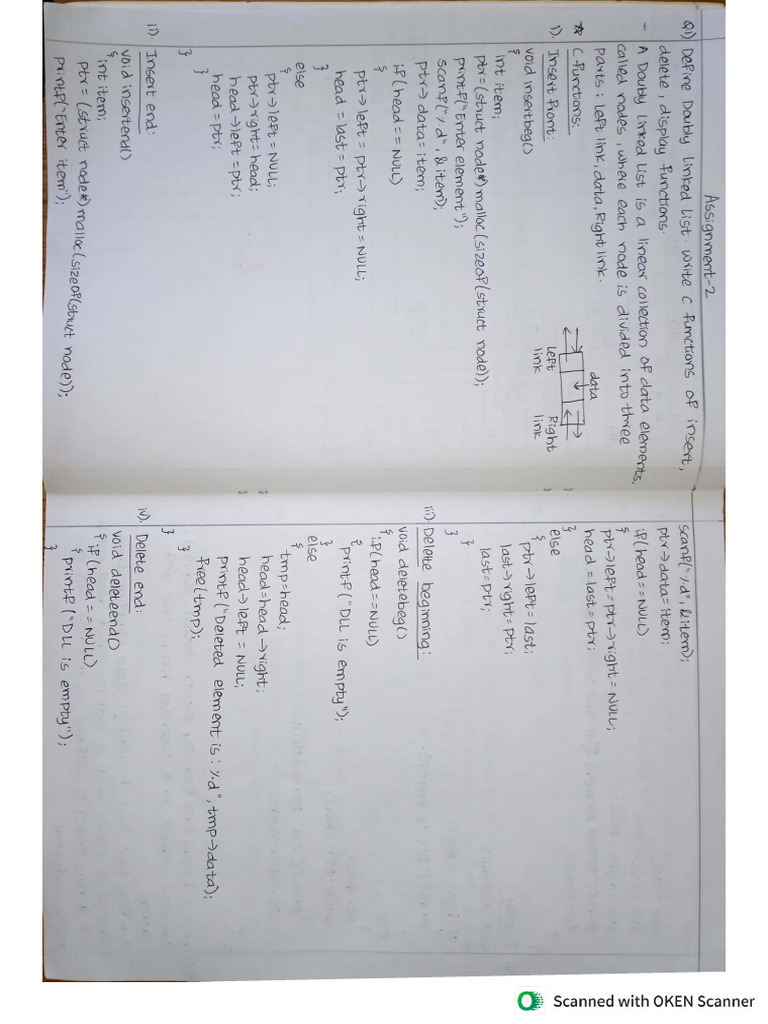 Assignment-2
Q1) Define Doubly linked list. write C functions of insert,
delete, display functions.
- A Doubly linked list is a linear collection of data elements,
called nodes, where each node is divided into three
parts: left link, data, Right link.
data
Left link
Right link
☆ C functions:
1). Insert front:
void insertbeg()
{
int item;
ptr=(struct node*)malloc(sizeof(struct node));
printf("Enter element");
scanf("%d",&item);
ptr->data=item;
if(head==NULL)
{
ptr->left = ptr->right = NULL;
head = last = ptr;
}
else
{
ptr->left = NULL;
ptr->right = head;
head->left = ptr;
head = ptr;
}
}
ii). Insert end:
void insertend()
{
int item;
ptr = (struct node*)malloc(sizeof(struct node));
printf("Enter item");
scanf("%d",&item);
ptr->data=item;
if(head==NULL)
{
ptr->left=ptr->right = NULL;
head = last=ptr;
}
else
{
ptr->left = last;
last->right = ptr;
last=ptr;
}
}
iii). Delete beginning:
void deletebeg()
{
if(head==NULL)
{
printf("DLL is empty");
}
else
{
tmp=head;
head=head->right;
head->left = NULL;
printf("Deleted element is: %d", tmp->data);
free(tmp);
}
}
iv). Delete end:
void deleteend()
{
if(head==NULL)
{
printf("DLL is empty");
}
Scanned with OKEN Scanner